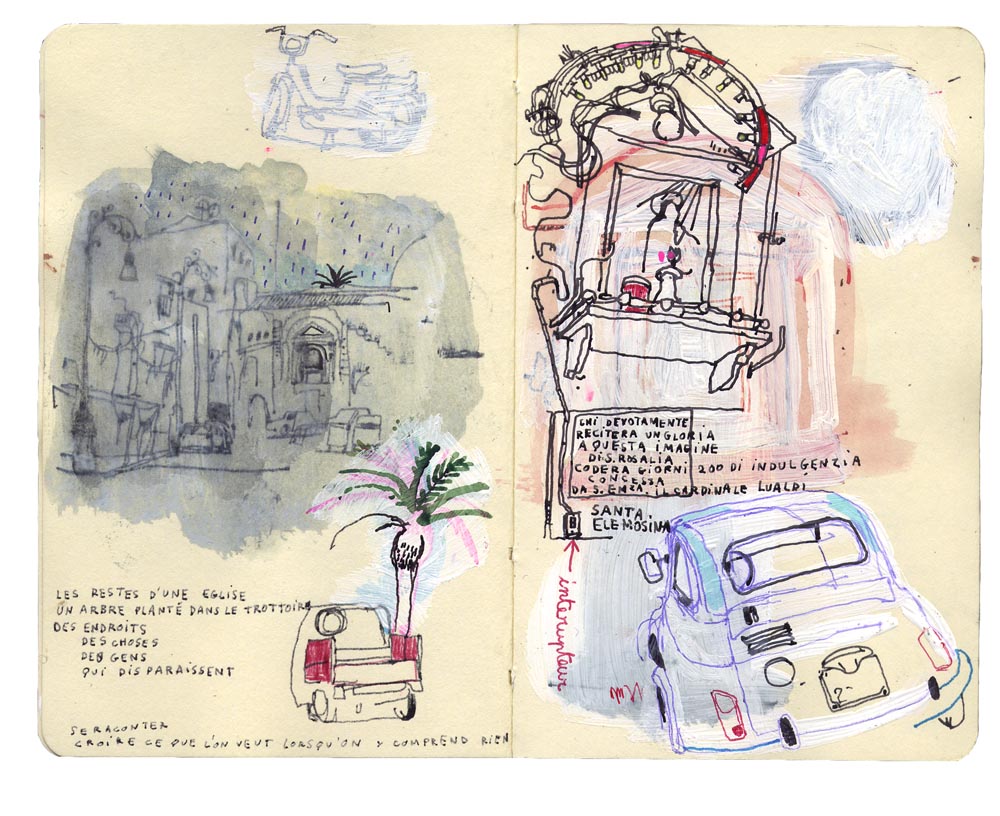 LES RESTES D'UNE EGLISE
UN ARBRE PLANTÉ DANS LE TROTTOIR
DES ENDROITS
DES CHOSES
DES GENS
QUI DISPARAISSENT
SE RACONTER
CROIRE CE QUE L'ON VEUT LORSQU'ON Y COMPREND RIEN
CHI DEVOTAMENTE
RECITERA UN GLORIA
A QUESTA IMAGINE
DI S. ROSALIA
CODERA GIORNI 200 DI INDULGENZIA
CONCESSA
DA S. ENZA. IL CARDINALE LUALDI
SANTA
ELEMOSINA
interupteur